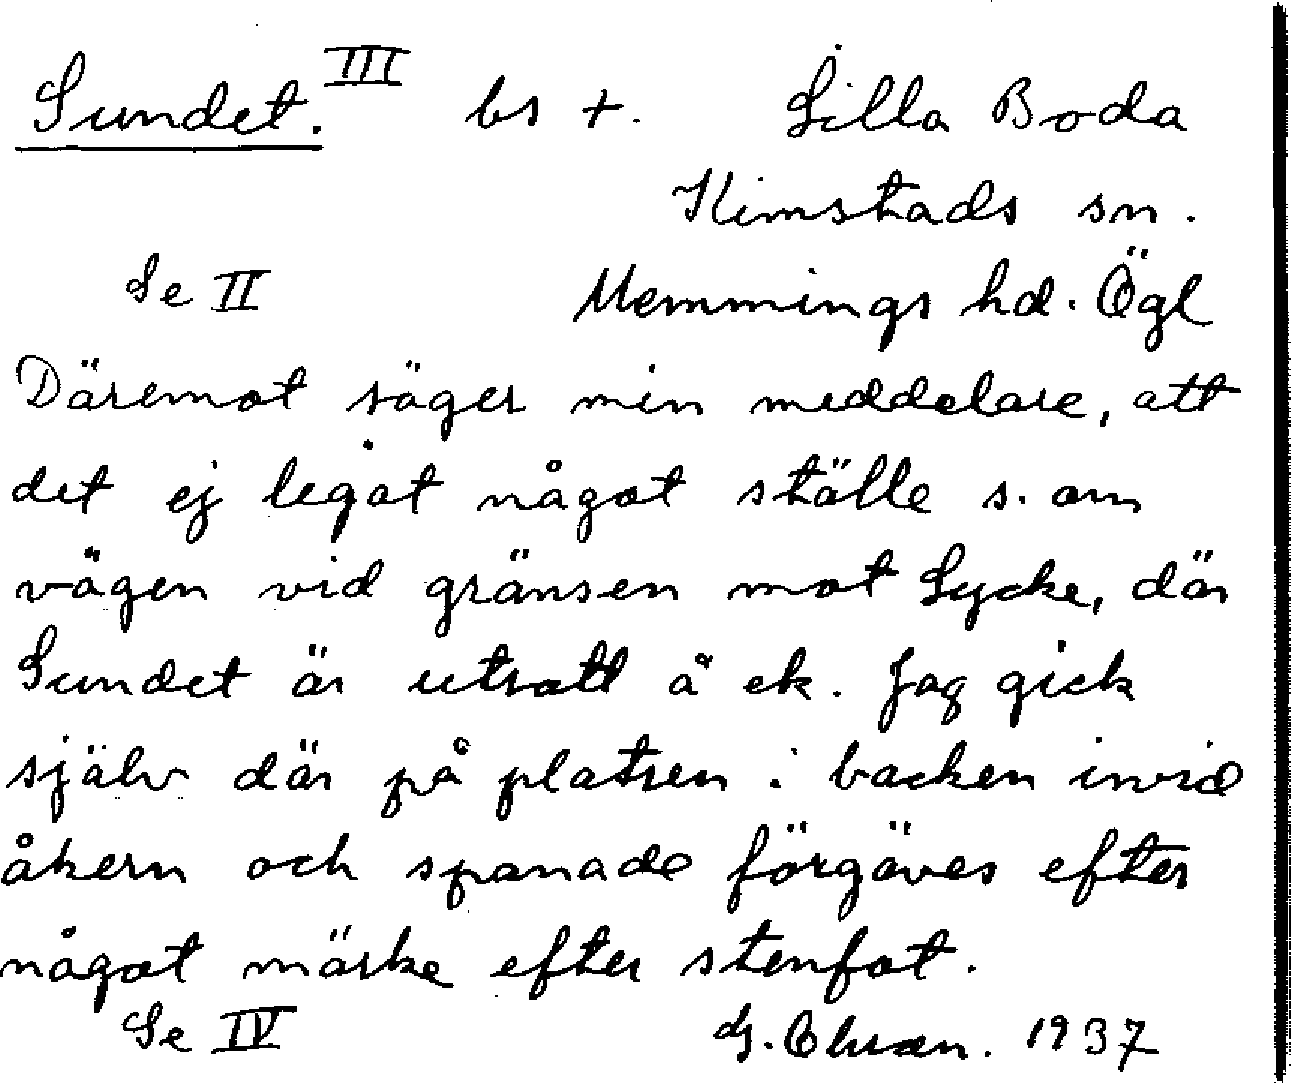 Sundet. III bs +. Lilla Boda
Kimstads sn.
Se II Memmings hd. Ögl
Däremot säger min meddelare, att
det ej legat något ställe s. om
vägen vid gränsen mot Lycke, där
Sundet är utsatt å ek. Jag gick
själv där på platsen i backen invid
åkern och spanade förgäves efter
något märke efter stenfot.
Se IV G. 1937